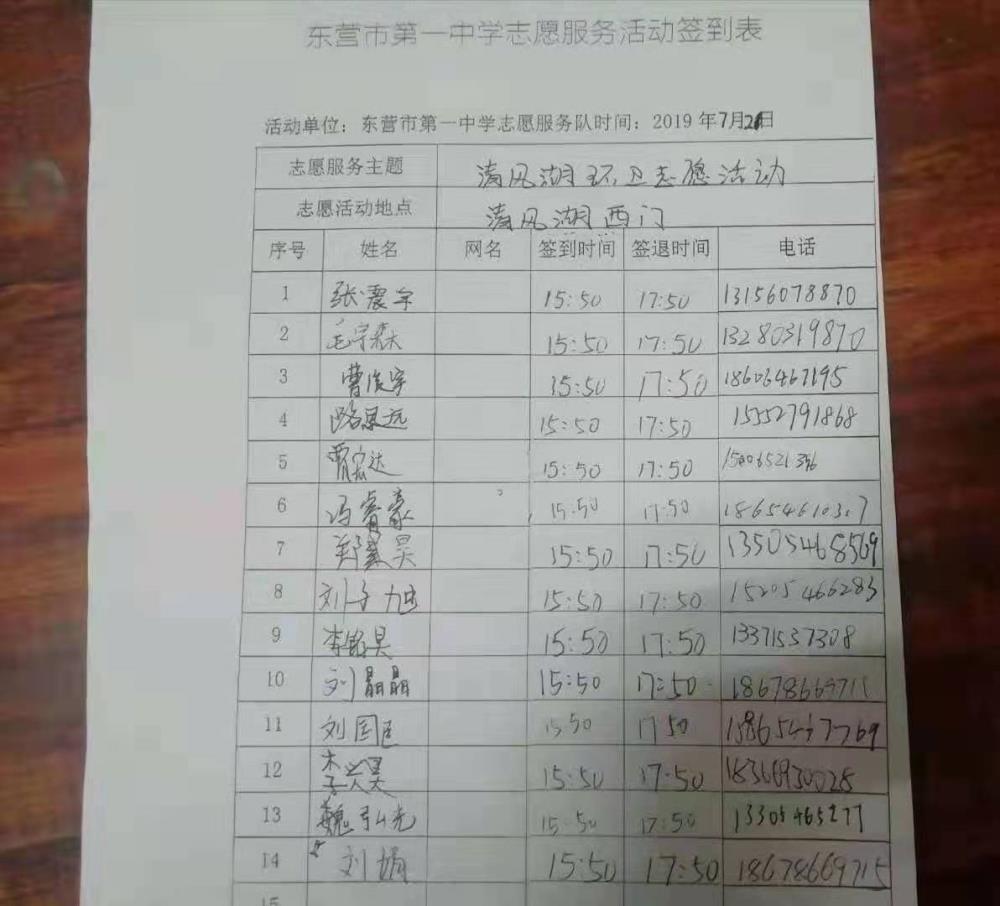 东营市第一中学志愿服务活动签到表
活动单位：东营市第一中学志愿服务队时间：2019年7月21日
志愿服务主题 清风湖环卫志愿活动
志愿活动地点 清风湖西门
序号 姓名 网名 签到时间 签退时间 电话
1 张震宇 15:50 17:50 13156078870
2 毛宇森 15:50 17:50 13280319870
3 曹俊宇 15:50 17:50 18606467195
4 路思远 15:50 17:50 15552791868
5 贾宏达 15:50 17:50
6 冯睿豪 15:50 17:50
7 15:50 17:50 13505468569
8 刘子旭 15:50 17:50 15205466283
9 李铭昊 15:50 17:50 13371537308
10 刘晶晶 15:50 17:50 18678669711
11 刘国臣 15:50 17:50
12 15:50 17:50 18366930028
13 魏弘光 15:50 17:50 13305465277
14 刘娟 15:50 17:50 18678669715
15